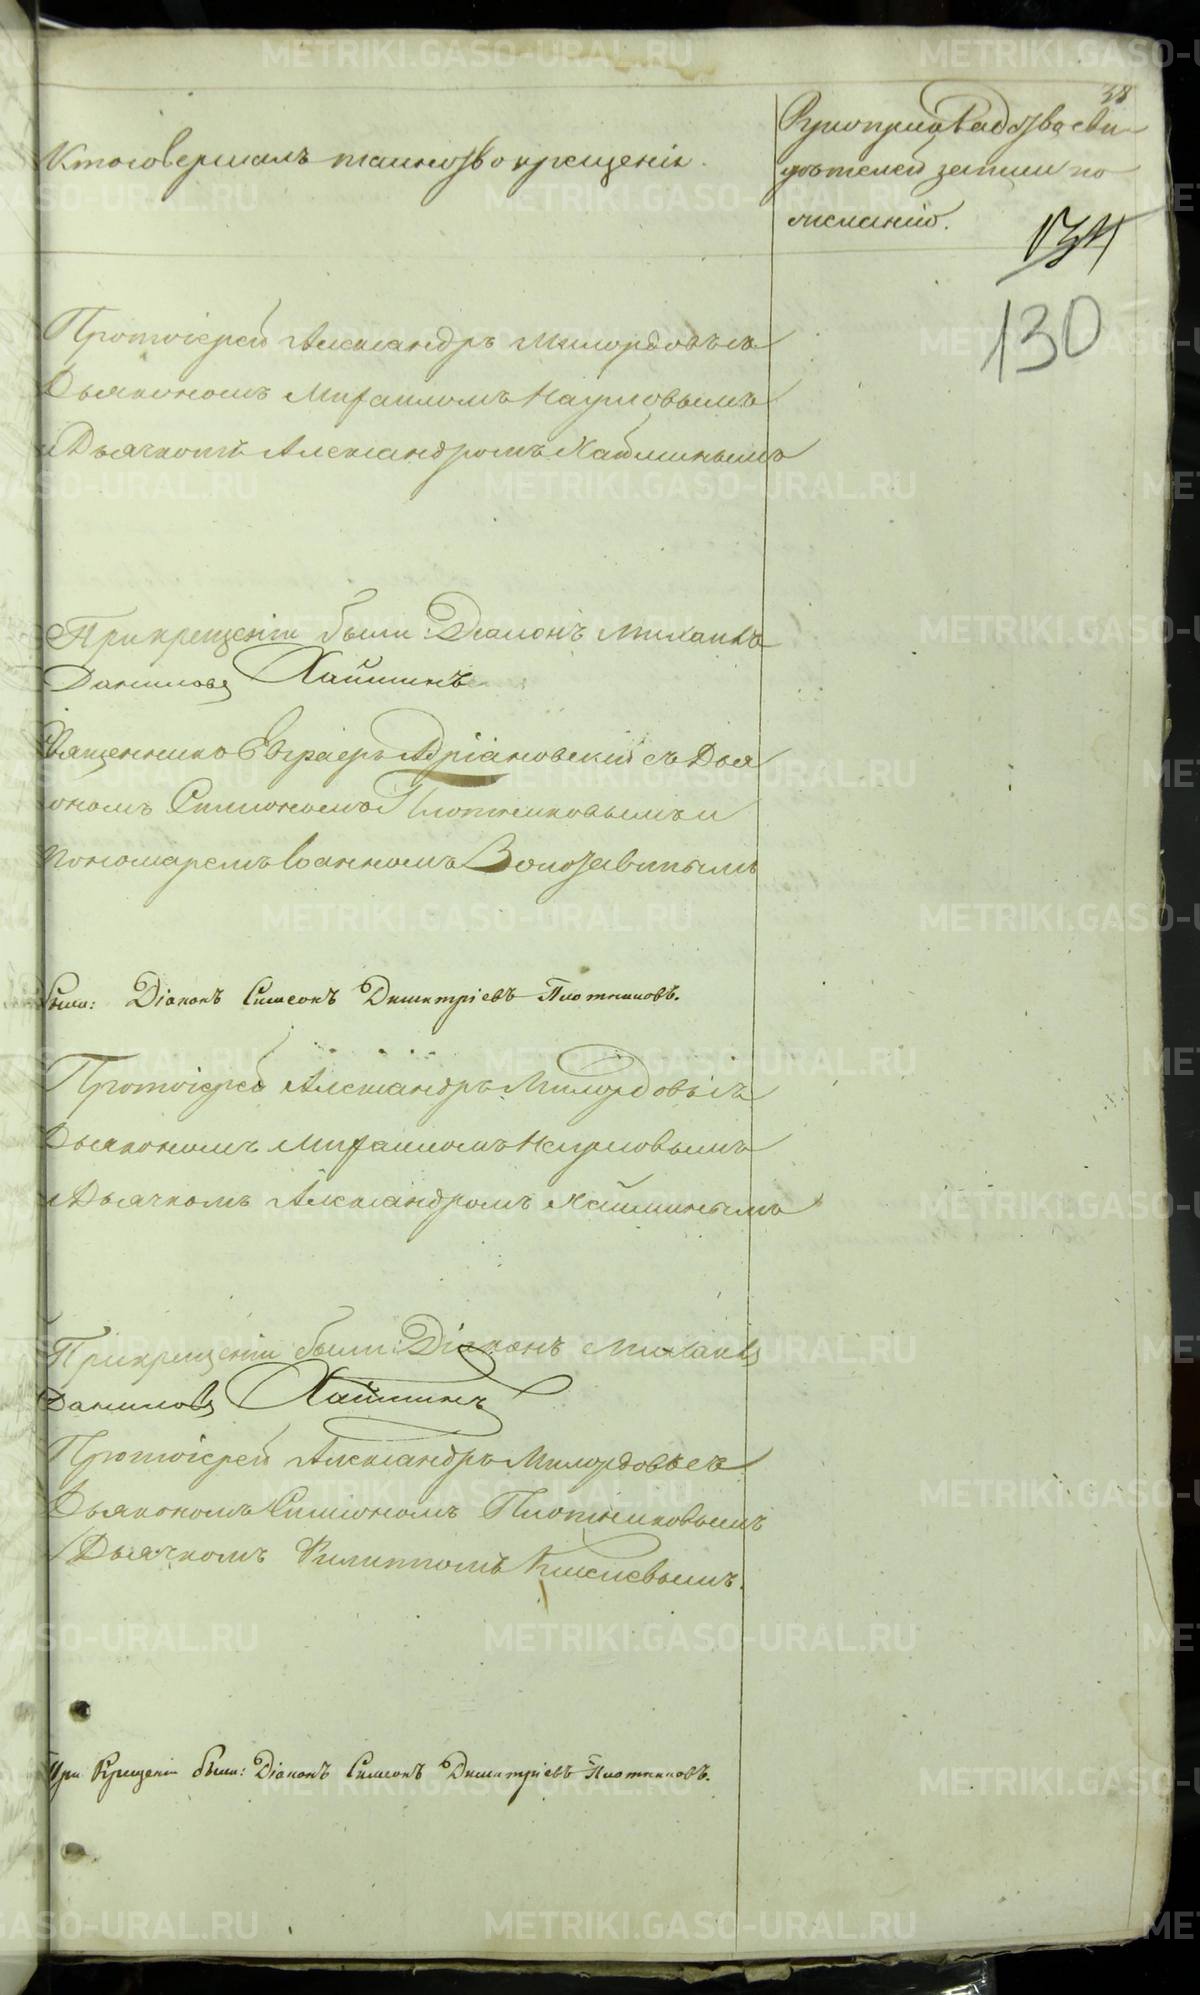 38
Кто совершалъ таинство крещенія.
Рукоприкладство сви-
дѣтелей записи по
желанію.
134
130
Протоіерей Александръ Милордовъ съ
Дьякономъ Михаиломъ Наумовымъ
и Дьячкомъ Александромъ Хайминымъ
При крещеніи были: Діаконъ Михаилъ
Даниловъ Хайминъ
Священникъ Евграфъ Адріановскій съ Дья
кономъ Симіономъ Плотниковымъ и
Пономаремъ Іоанномъ
были: Діаконъ Симеонъ Димитріевъ Плотниковъ.
Протоіерей Александръ Милордовъ съ
Дьякономъ Михаиломъ Наумовымъ
и Дьячкомъ Александромъ Хайминымъ
При крещеніи были: Діаконъ Михаилъ
Даниловъ Хайминъ
Протоіерей Александръ Милордовъ съ
Дьякономъ Симіономъ Плотниковымъ
и Дьячкомъ Филиппомъ Киселевымъ.
При Крещеніи были: Діаконъ Симеонъ Димитріевъ Плотниковъ.
METRIKI.GASO-URAL.RU